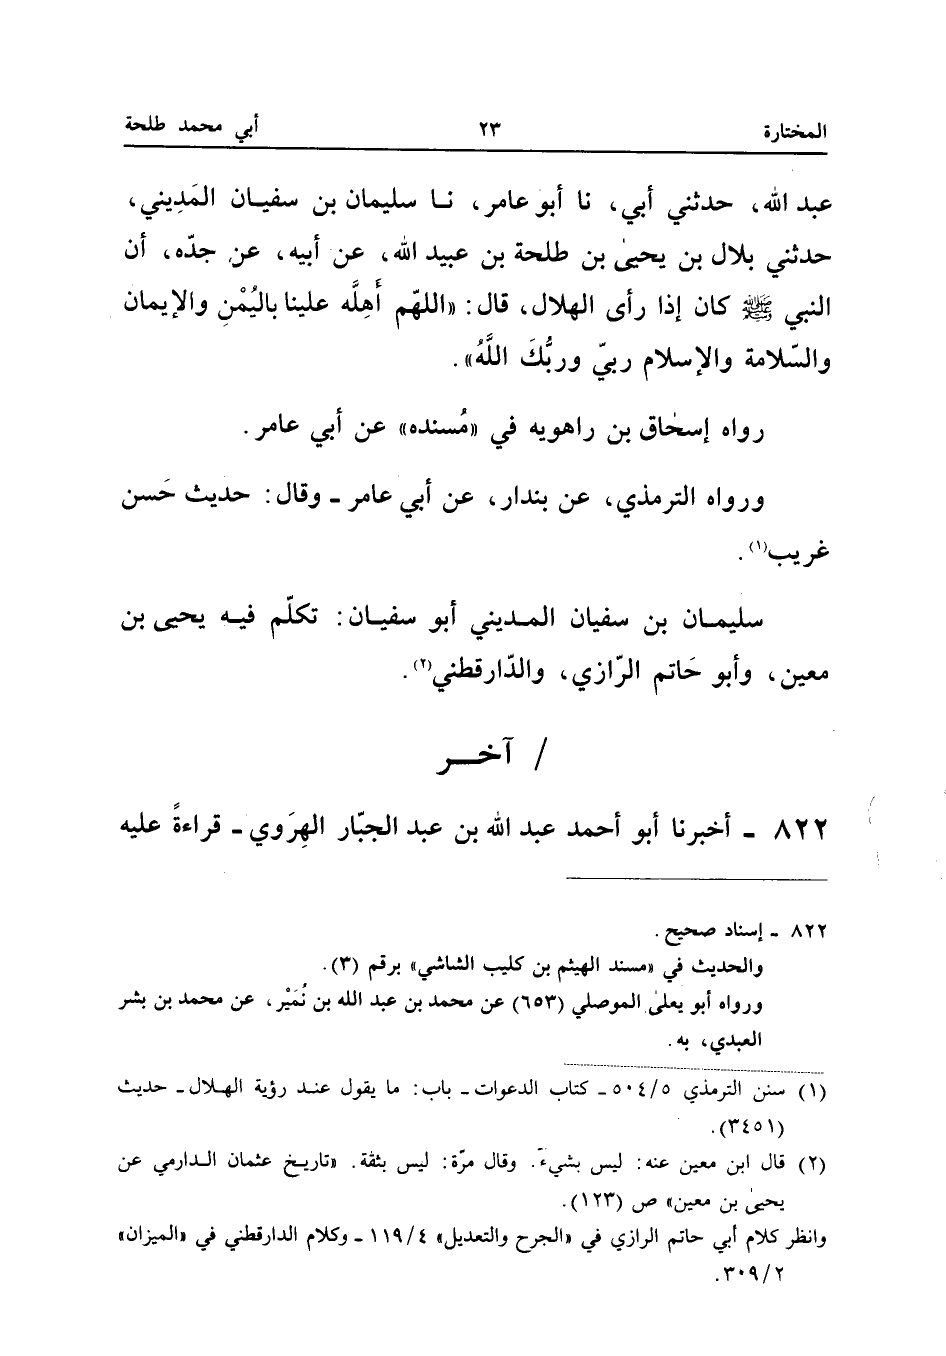 المختارة ٢٣ أبي محمد طلحة
عبد الله، حدثني أبي، نا أبو عامر، نـا سليمان بن سفيـان المَدِيني،
حدثني بلال بن يحيىٰ بن طلحة بن عبيد الله، عن أبيه، عن جدّه، أن
النبي ﷺ كان إذا رأى الهلال، قال: «اللهّم أَهِلَّه علينا باليُمْنِ والإيمان
والسّلامة والإسلام ربيّ وربُّكَ اللَّهُ».
رواه إسحٰاق بن راهويه في «مُسنده» عن أبي عامر.
ورواه الترمذي، عن بندار، عن أبي عامر ـ وقال: حديث حَسن
غريب(١).
سليمـان بن سفيان المـديني أبو سفيـان: تكلّم فيـه يحيى بن
معين، وأبو حَاتم الرّازي، والدّارقطني(٢).
/ آخـــر
٨٢٢ ـ أخبرنا أبو أحمد عبد الله بن عبد الجبّار الهِرَوي ـ قراءةً عليه
٨٢٢ ـ إسناد صحيح.
والحديث في «مسند الهيثم بن كليب الشاشي» برقم (٣).
ورواه أبو يعلىٰ الموصلي (٦٥٣) عن محمد بن عبد الله بن نُمَيْر، عن محمد بن بشر
العبدي، به.
(١) سنن الترمذي ٥٠٤/٥ ـ كتاب الدعوات ـ باب: ما يقول عنـد رؤية الهـلال ـ حديث
(٣٤٥١).
(٢) قال ابن معين عنه: ليس بشيء. وقال مرّة: ليس بثقة. «تاريـخ عثمان الـدارمي عن
يحيىٰ بن معين» ص (١٢٣).
وانظر كلام أبي حاتم الرازي في «الجرح والتعديل» ١١٩/٤ ـ وكلام الدارقطني في «الميزان»
٣٠٩/٢.